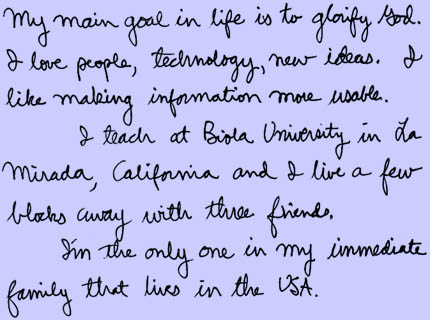 My main goal in life is to glorify God.
I love people, technology, new ideas. I
like making information more usable.
I teach at Biola University in La
Mirada, California and I live a few
blocks away with three friends.
I'm the only one in my immediate
family that lives in the USA.